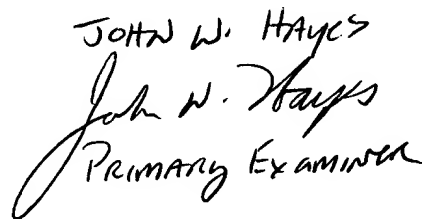 JOHN W. HAYES
John W. Hayes
PRIMARY EXAMINER